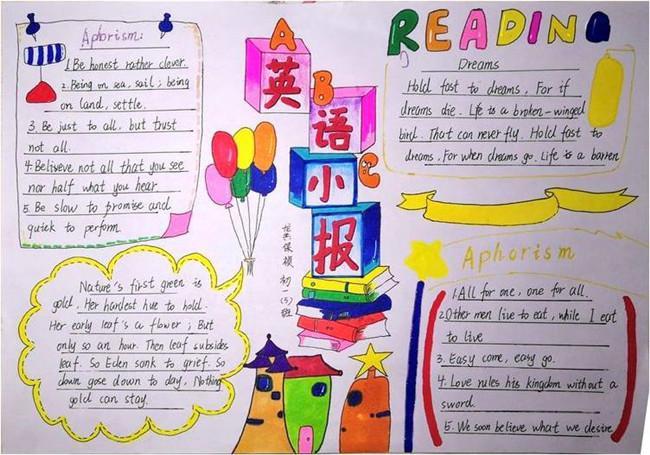 Aphorism:
1. Be honest rather clever.
2. Being on sea, sail; being
on land, settle.
3. Be just to all, but trust
not all.
4. Beliveve not all that you see
nor half what you hear
5. Be slow to promise and
quick to perform.
Nature's first green is
gold. Her hardest hue to hold.
Her early leaf's a flower; But
only so an hour. Then leaf subsides
leaf. So Eden sank to grief. So
down gose down to day, Nothing
gold can stay.
A
英
B
语
C
小
报
初一(5)班
READING
Dreams
Hold fast to dreams, For if
dreams die. Life is a broken-winged
bird. That can never fly. Hold fast to
dreams. For when dreams go. Life is a barren
Aphorism
1. All for one, one for all.
2. Other men live to eat, while I eat
to live
3. Easy come, easy go.
4. Love rules his kingdom without a
sword.
5. We soon believe what we desire